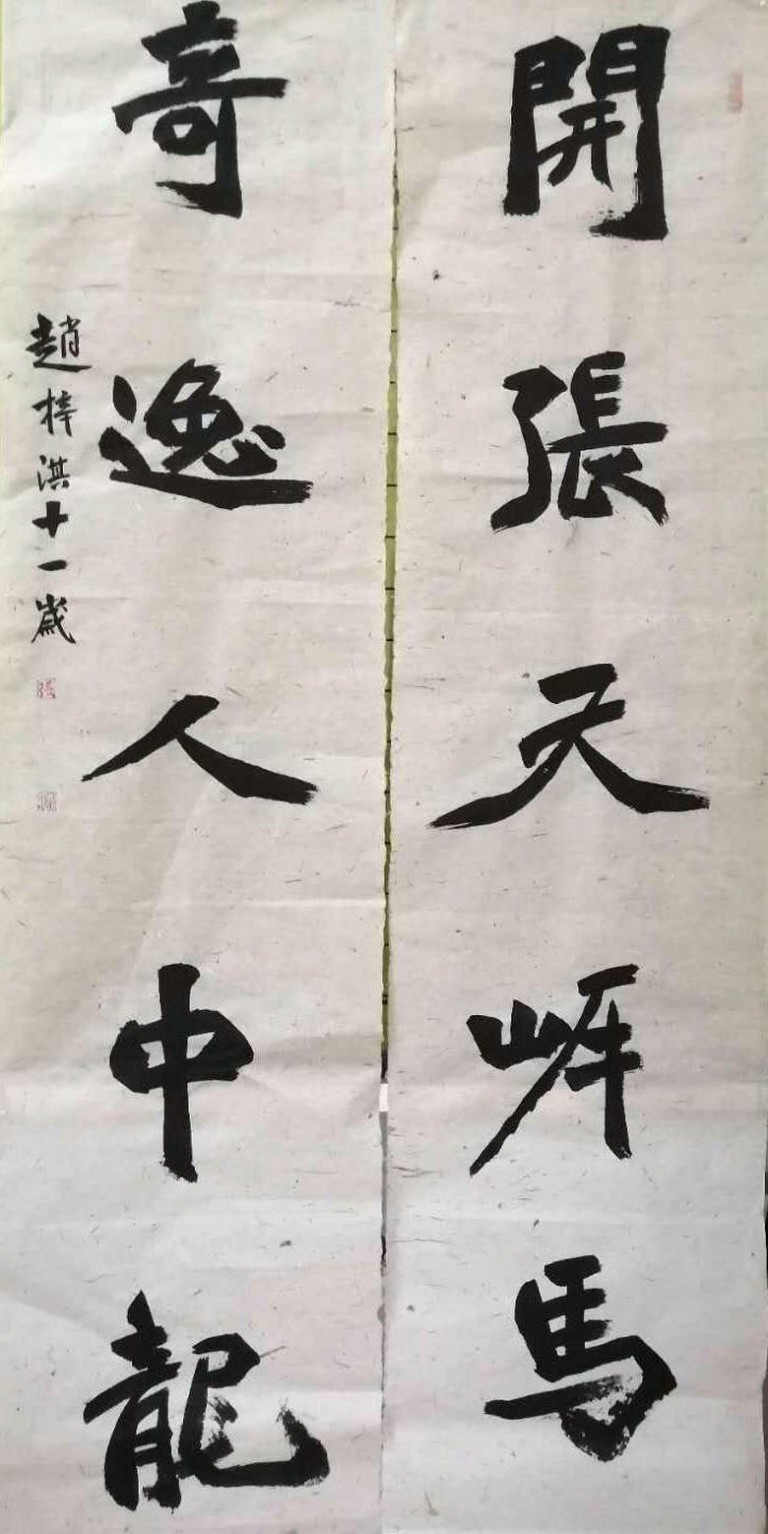 開張天岸馬
奇逸人中龍
趙梓淇十一歲